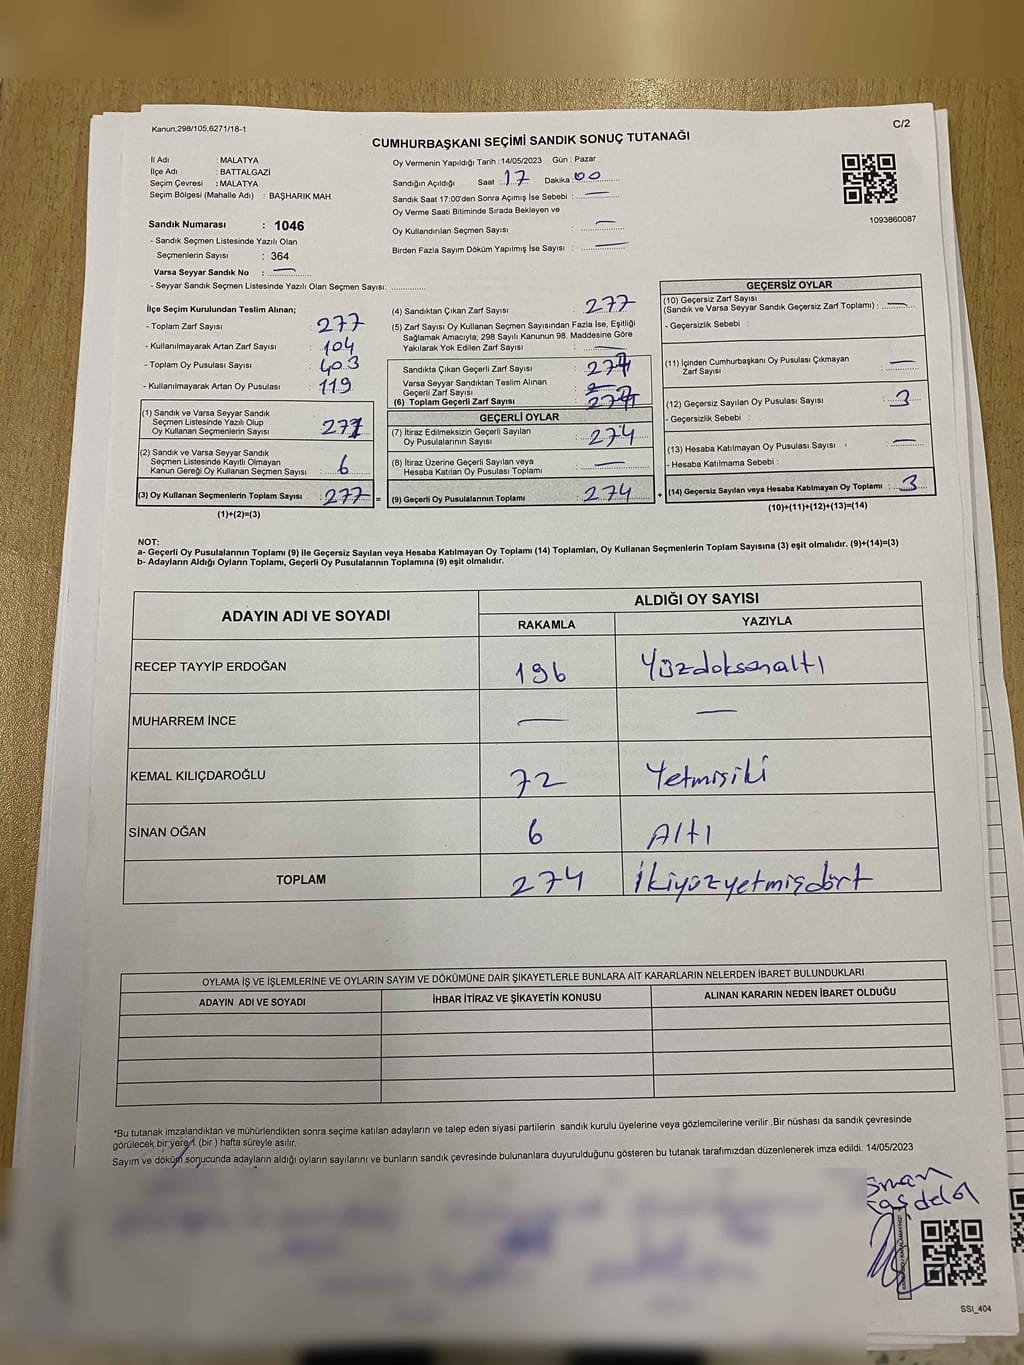 Kanun;298/105,6271/18-1
C/2
CUMHURBAŞKANI SEÇİMİ SANDIK SONUÇ TUTANAĞI
İl Adı : MALATYA
İlçe Adı : BATTALGAZİ
Seçim Çevresi : MALATYA
Seçim Bölgesi (Mahalle Adı) : BAŞHARIK MAH.
Sandık Numarası : 1046
- Sandık Seçmen Listesinde Yazılı Olan
Seçmenlerin Sayısı : 364
Varsa Seyyar Sandık No : —
- Seyyar Sandık Seçmen Listesinde Yazılı Olan Seçmen Sayısı: ............
Oy Vermenin Yapıldığı Tarih : 14/05/2023 Gün : Pazar
Sandığın Açıldığı Saat : 17 Dakika : 00
Sandık Saat 17:00'den Sonra Açımış İse Sebebi : —
Oy Verme Saati Bitiminde Sırada Bekleyen ve
Oy Kullandırılan Seçmen Sayısı : —
Birden Fazla Sayım Döküm Yapılmış İse Sayısı : —
1093860087
İlçe Seçim Kurulundan Teslim Alınan;
- Toplam Zarf Sayısı : 277
- Kullanılmayarak Artan Zarf Sayısı : 104
- Toplam Oy Pusulası Sayısı : 403
- Kullanılmayarak Artan Oy Pusulası : 119
(1) Sandık ve Varsa Seyyar Sandık
Seçmen Listesinde Yazılı Olup
Oy Kullanan Seçmenlerin Sayısı : 277
(2) Sandık ve Varsa Seyyar Sandık
Seçmen Listesinde Kayıtlı Olmayan
Kanun Gereği Oy Kullanan Seçmen Sayısı : 6
(3) Oy Kullanan Seçmenlerin Toplam Sayısı : 277 =
(1)+(2)=(3)
(4) Sandıktan Çıkan Zarf Sayısı : 277
(5) Zarf Sayısı Oy Kullanan Seçmen Sayısından Fazla İse, Eşitliği
Sağlamak Amacıyla; 298 Sayılı Kanunun 98. Maddesine Göre
Yakılarak Yok Edilen Zarf Sayısı : —
Sandıkta Çıkan Geçerli Zarf Sayısı :
Varsa Seyyar Sandıktan Teslim Alınan
Geçerli Zarf Sayısı :
(6) Toplam Geçerli Zarf Sayısı :
GEÇERLİ OYLAR
(7) İtiraz Edilmeksizin Geçerli Sayılan
Oy Pusulalarının Sayısı : 274
(8) İtiraz Üzerine Geçerli Sayılan veya
Hesaba Katılan Oy Pusulası Toplamı : —
(9) Geçerli Oy Pusulalarının Toplamı : 274 +
GEÇERSİZ OYLAR
(10) Geçersiz Zarf Sayısı
(Sandık ve Varsa Seyyar Sandık Geçersiz Zarf Toplamı) : —
- Geçersizlik Sebebi :
(11) İçinden Cumhurbaşkanı Oy Pusulası Çıkmayan
Zarf Sayısı : —
(12) Geçersiz Sayılan Oy Pusulası Sayısı : 3
- Geçersizlik Sebebi :
(13) Hesaba Katılmayan Oy Pusulası Sayısı : —
- Hesaba Katılmama Sebebi :
(14) Geçersiz Sayılan veya Hesaba Katılmayan Oy Toplamı : 3
(10)+(11)+(12)+(13)=(14)
NOT:
a- Geçerli Oy Pusulalarının Toplamı (9) ile Geçersiz Sayılan veya Hesaba Katılmayan Oy Toplamı (14) Toplamları, Oy Kullanan Seçmenlerin Toplam Sayısına (3) eşit olmalıdır. (9)+(14)=(3)
b- Adayların Aldığı Oyların Toplamı, Geçerli Oy Pusulalarının Toplamına (9) eşit olmalıdır.
ADAYIN ADI VE SOYADI ALDIĞI OY SAYISI
RAKAMLA YAZIYLA
RECEP TAYYİP ERDOĞAN 196 Yüzdoksanaltı
MUHARREM İNCE — —
KEMAL KILIÇDAROĞLU 72 Yetmişiki
SİNAN OĞAN 6 Altı
TOPLAM 274 İkiyüzyetmişdört
OYLAMA İŞ VE İŞLEMLERİNE VE OYLARIN SAYIM VE DÖKÜMÜNE DAİR ŞİKAYETLERLE BUNLARA AİT KARARLARIN NELERDEN İBARET BULUNDUKLARI
ADAYIN ADI VE SOYADI İHBAR İTİRAZ VE ŞİKAYETİN KONUSU ALINAN KARARIN NEDEN İBARET OLDUĞU
*Bu tutanak imzalandıktan ve mühürlendikten sonra seçime katılan adayların ve talep eden siyasi partilerin sandık kurulu üyelerine veya gözlemcilerine verilir .Bir nüshası da sandık çevresinde
görülecek bir yere 1 (bir) hafta süreyle asılır.
Sayım ve döküm sonucunda adayların aldığı oyların sayılarını ve bunların sandık çevresinde bulunanlara duyurulduğunu gösteren bu tutanak tarafımızdan düzenlenerek imza edildi. 14/05/2023
SSI_404